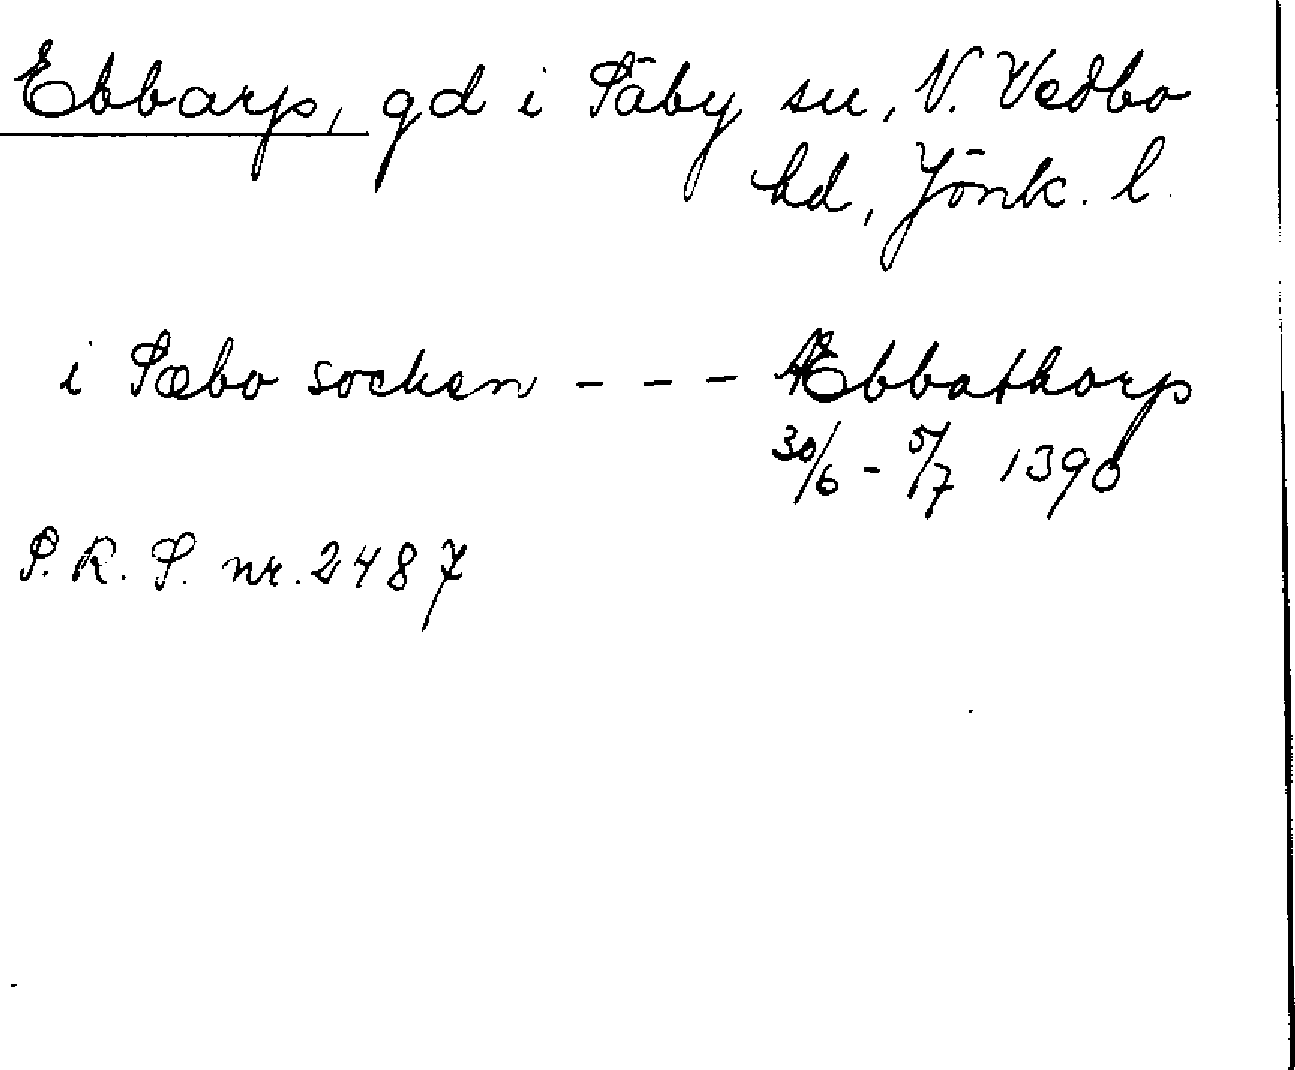 Ebbarp, gd i Säby sn, N. Vedbo
hd, Jönk. l.
i Sæbo socken - - - Æbbathorp
30/6 - 5/7 1390
S. R. S. nr. 2487